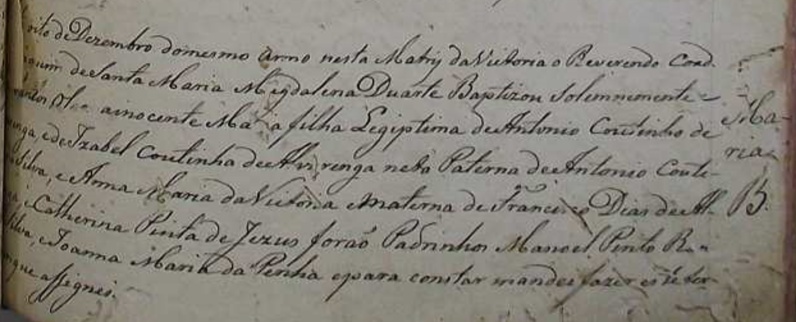 oito de Dezembro domesmo anno nesta Matriz da Victoria o Reverendo Coad.
quim de Santa Maria Magdalena Duarte Baptizou Solemnemente
Oleo ainocente Maria filha Legiptima de Antonio Coutinho de
renga, e de Izabel Coutinha de Alvirenga neta Paterna de Antonio Couti-
Silva, e Anna Maria da Victoria e materna de Francisco Dias de Al-
e Catherina Pinta de Jezus foraõ Padrinhos Manoel Pinto
Silva, e Joanna Maria da Penha epara constar mandei fazer este ter-
mo que assignei.
Ma-
ria
B.